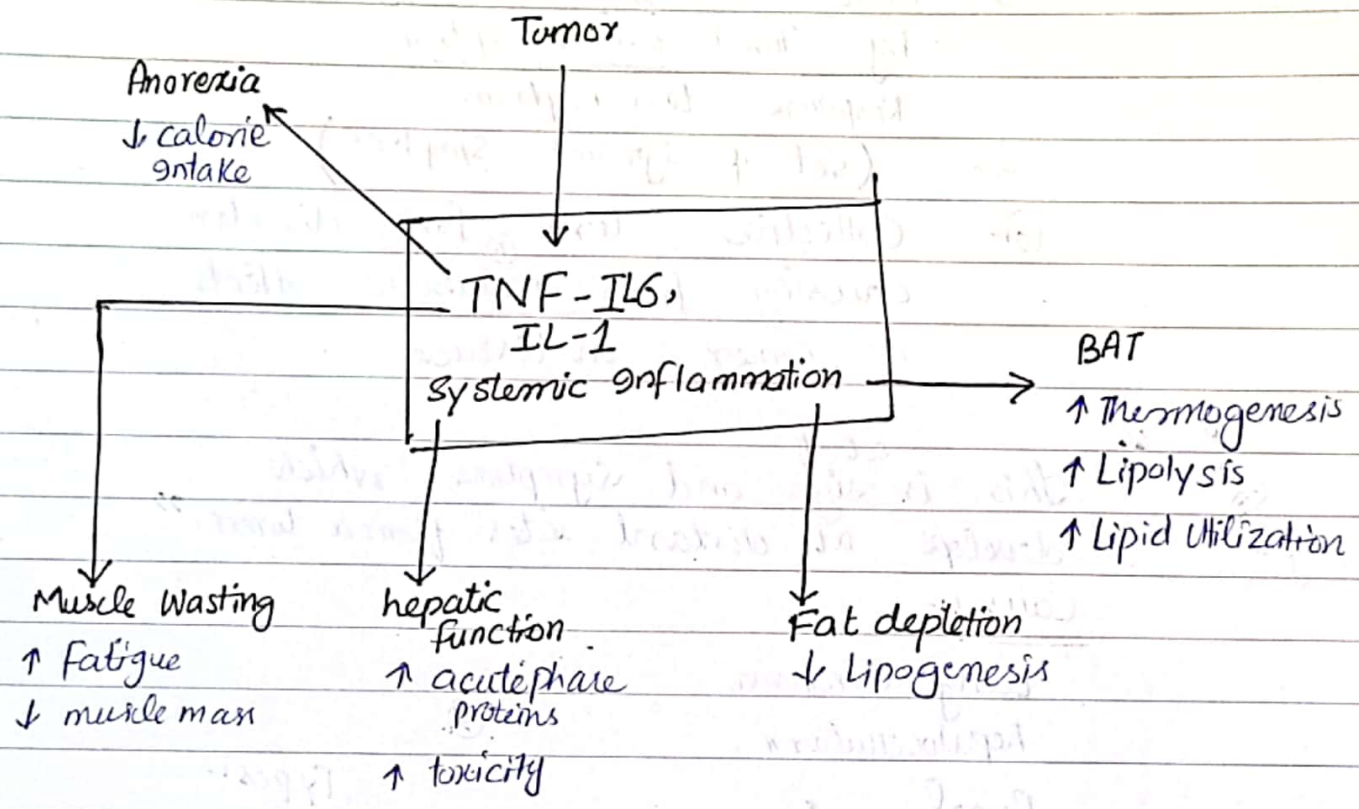 Tumor
Anorexia
↓ calorie
intake
TNF-IL6,
IL-1
Systemic inflammation
BAT
↑ Thermogenesis
↑ Lipolysis
↑ Lipid Utilization
Muscle Wasting
↑ fatigue
↓ muscle mass
hepatic
function
↑ acute phase
proteins
↑ toxicity
Fat depletion
↓ Lipogenesis